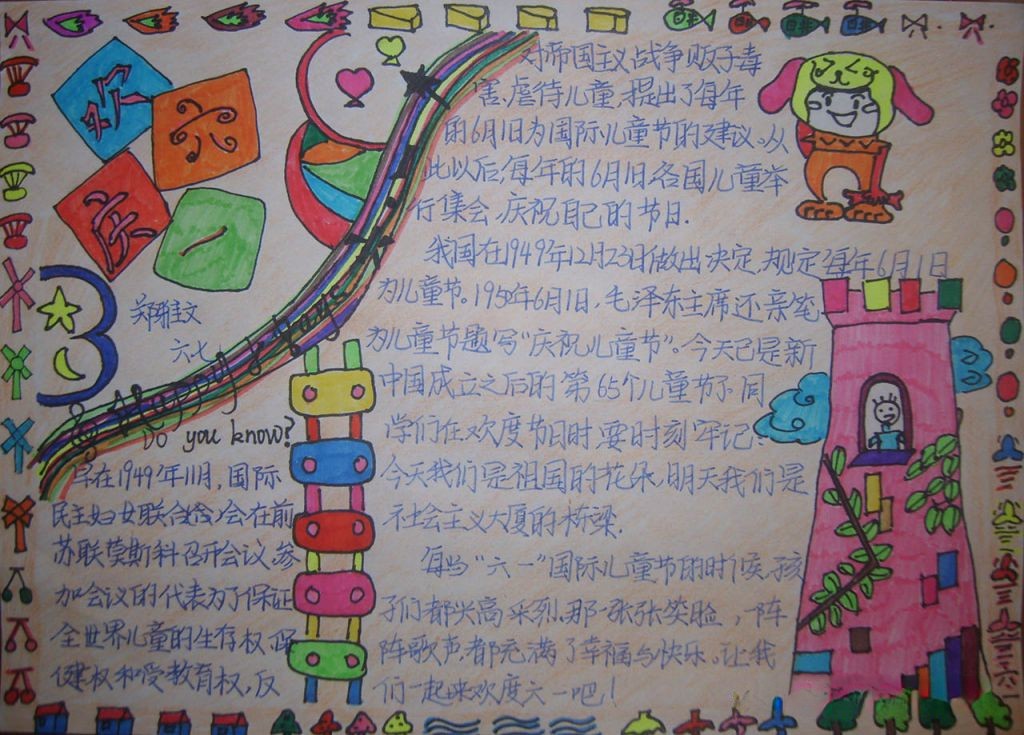 欢
六
庆
一
郑雅文
六七
Happy
Do you know?
早在1949年11月,国际
民主妇女联合会会在前
苏联莫斯科召开会议,参
加会议的代表为了保证
全世界儿童的生存权,保
健权和受教育权,反
对帝国主义战争贩子毒
害,虐待儿童,提出了每年
的6月1日为国际儿童节的建议。从
此以后,每年的6月1日,各国儿童举
行集会,庆祝自己的节日.
我国在1949年12月23日做出决定,规定每年6月1日
为儿童节。1950年6月1日,毛泽东主席还亲笔
为儿童节题写“庆祝儿童节”。今天已是新
中国成立之后的第65个儿童节了,同
学们在欢度节日时,要时刻牢记:
今天我们是祖国的花朵,明天我们是
社会主义大厦的栋梁.
每当“六一”国际儿童节的时候,孩
子们都兴高采烈.那一张张笑脸,一阵
阵歌声,都充满了幸福与快乐.让我
们一起来欢度六一吧!